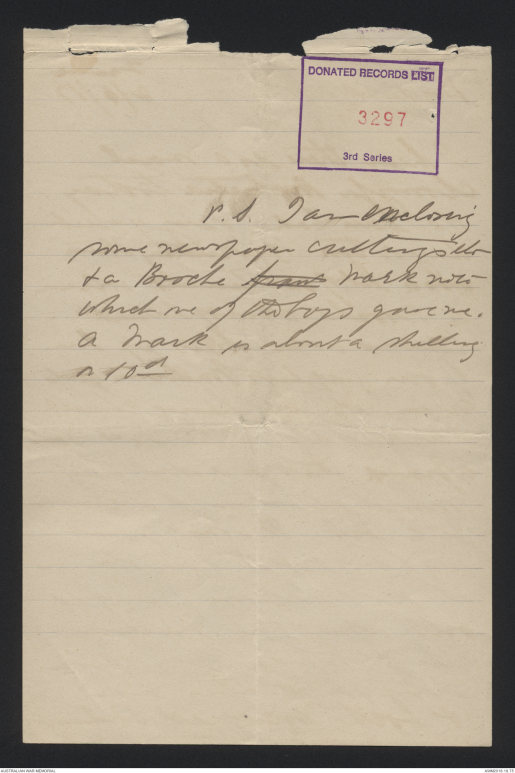 DONATED RECORDS LIST
3297
3rd Series
P.S. I am enclosing
some newspaper cuttings etc
& a Broche franc Mark note
which one of the boys gave me.
A Mark is about a shilling
or 10d
AUSTRALIAN WAR MEMORIAL